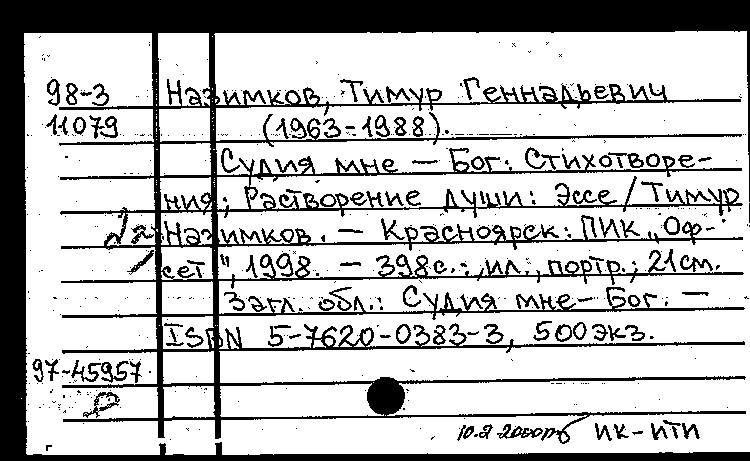 98-3 Назимков, Тимур Геннадьевич
11079 (1963-1988).
Судия мне — Бог: Стихотворе-
ния; Растворение души: Эссе / Тимур
Назимков. — Красноярск: ПИК „Оф-
сет", 1998. — 398с.: ил., портр.; 21см.
Загл. обл.: Судия мне — Бог. —
ISBN 5-7620-0383-3, 500экз.
97-45957
Р
10.2 ИК-ИТИ